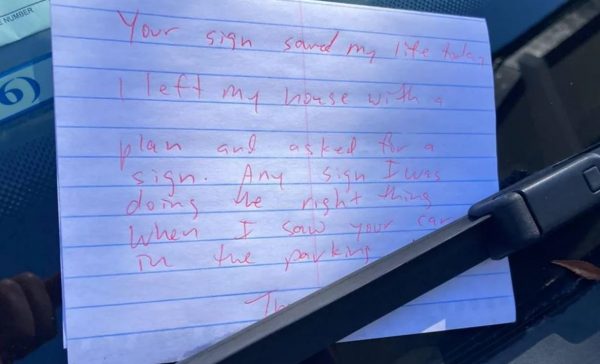 E NUMBER
Your sign saved my life today
I left my house with a
plan and asked for a
sign. Any sign I was
doing the right thing
When I saw your car
in the parking